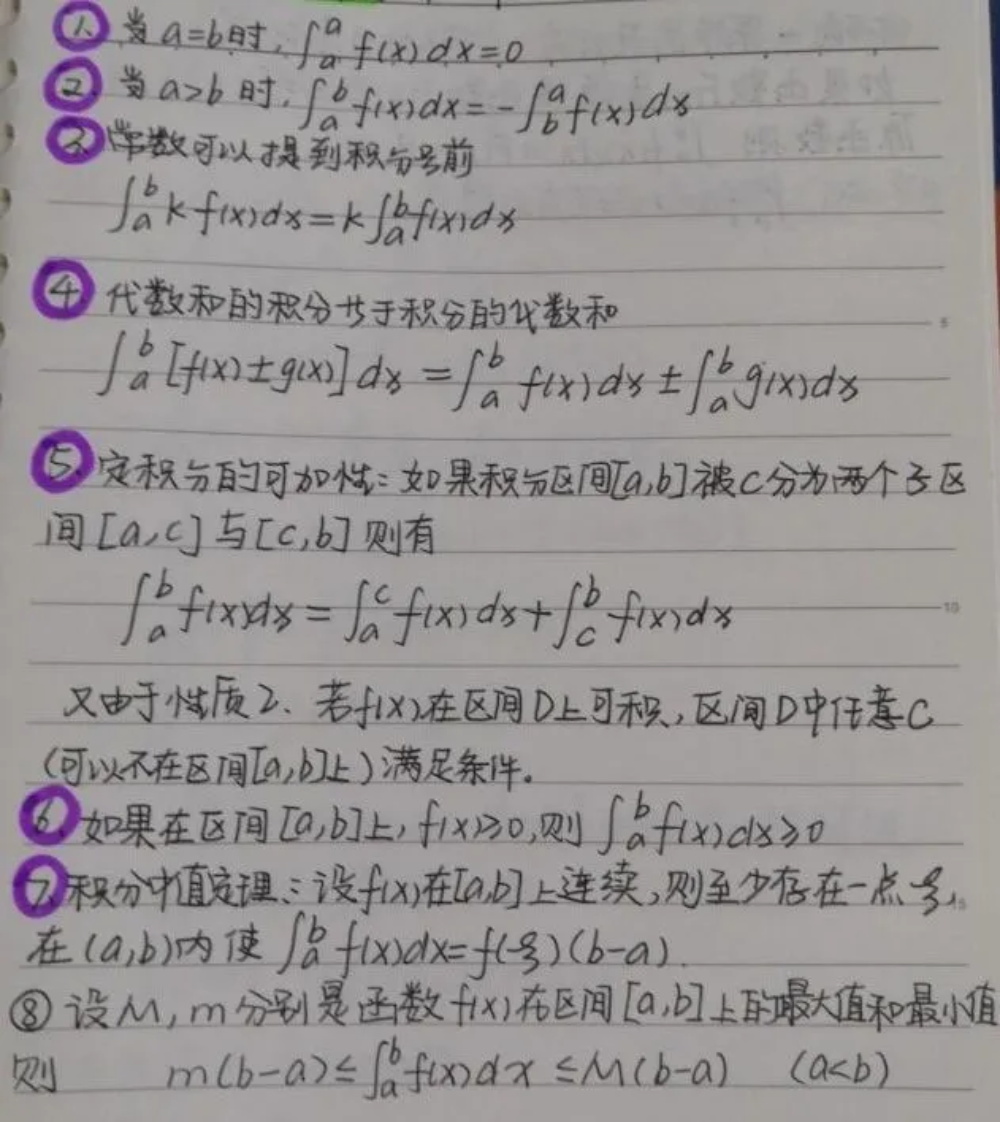 1. 当a=b时，∫ₐᵃ f(x)dx=0
2. 当a>b时，∫ₐᵇ f(x)dx=-∫_b^a f(x)dx
3. 常数可以提到积分号前
∫ₐᵇ kf(x)dx=k∫ₐᵇ f(x)dx
4 代数和的积分等于积分的代数和
∫ₐᵇ [f(x)±g(x)]dx=∫ₐᵇ f(x)dx±∫ₐᵇ g(x)dx
5. 定积分的可加性：如果积分区间[a,b]被c分为两个子区
间[a,c]与[c,b]则有
∫ₐᵇ f(x)dx=∫ₐᶜ f(x)dx+∫_c^b f(x)dx
又由于性质2.若f(x)在区间D上可积，区间D中任意C
（可以不在区间[a,b]上）满足条件。
6. 如果在区间[a,b]上，f(x)≥0,则∫ₐᵇ f(x)dx≥0
7. 积分中值定理：设f(x)在[a,b]上连续，则至少存在一点ξ，
在(a,b)内使∫ₐᵇ f(x)dx=f(ξ)(b-a).
⑧ 设M,m分别是函数f(x)在区间[a,b]上的最大值和最小值
则 m(b-a)≤∫ₐᵇ f(x)dx≤M(b-a) (a<b)